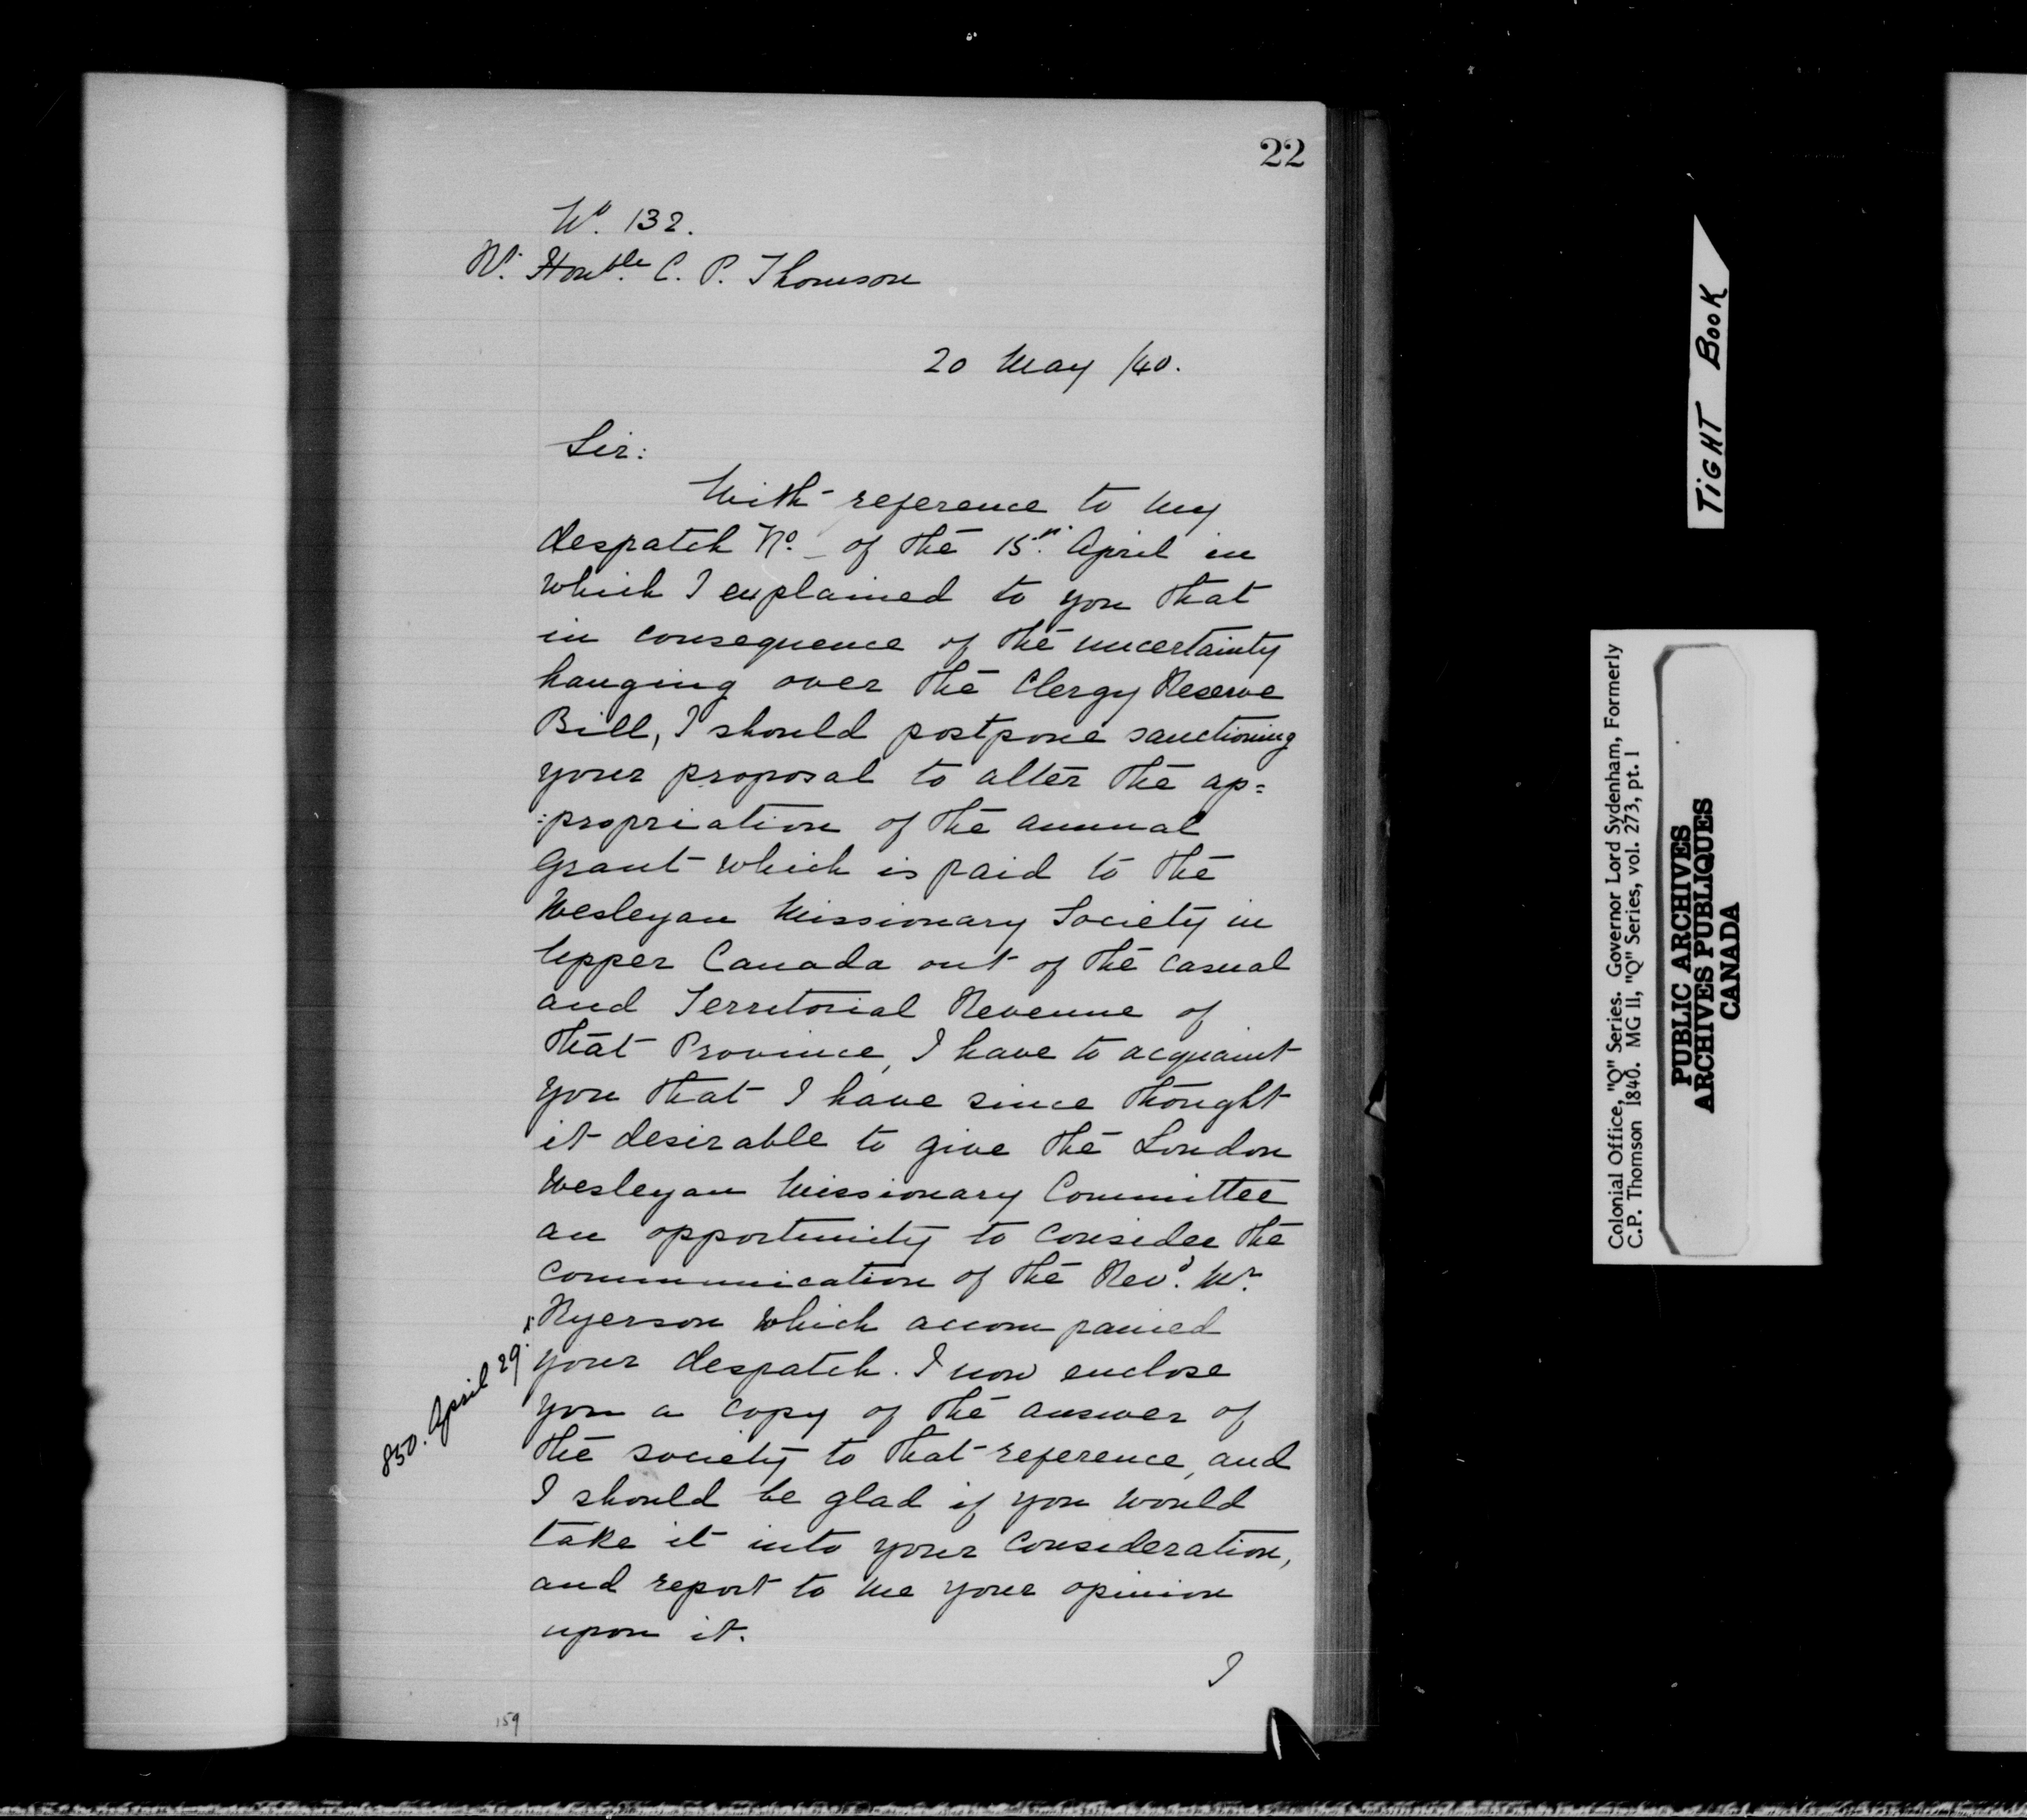 22
No. 132.
Rt. Honble. C. P. Thomson
20 May /40.
Sir:
With reference to my
despatch No. _ of the 15th. April in
which I explained to you that
in consequence of the uncertainty
hanging over the Clergy Reserve
Bill, I should postpone sanctioning
your proposal to alter the ap=
:propriation of the annual
Grant which is paid to the
Wesleyan Missionary Society in
Upper Canada out of the casual
and Territorial Revenue of
that Province, I have to acquaint
you that I have since thought
it desirable to give the London
Wesleyan Missionary Committee
an opportunity to consider the
communication of the Revd. Mr.
x Ryerson which accompanied
your despatch. I now enclose
you a copy of the answer of
the society to that reference, and
I should be glad if you would
take it into your consideration,
and report to me your opinion
upon it.
I
850. April 29.
159
TIGHT BOOK
Colonial Office, "Q" Series. Governor Lord Sydenham, Formerly
C.P. Thomson 1840. MG 11, "Q" Series, vol. 273, pt. 1
PUBLIC ARCHIVES
ARCHIVES PUBLIQUES
CANADA